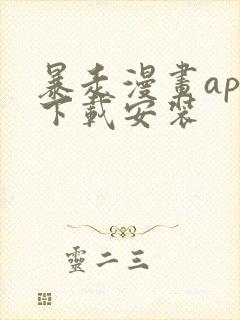 暴汞漫畫ap
下載安裝
靈二三